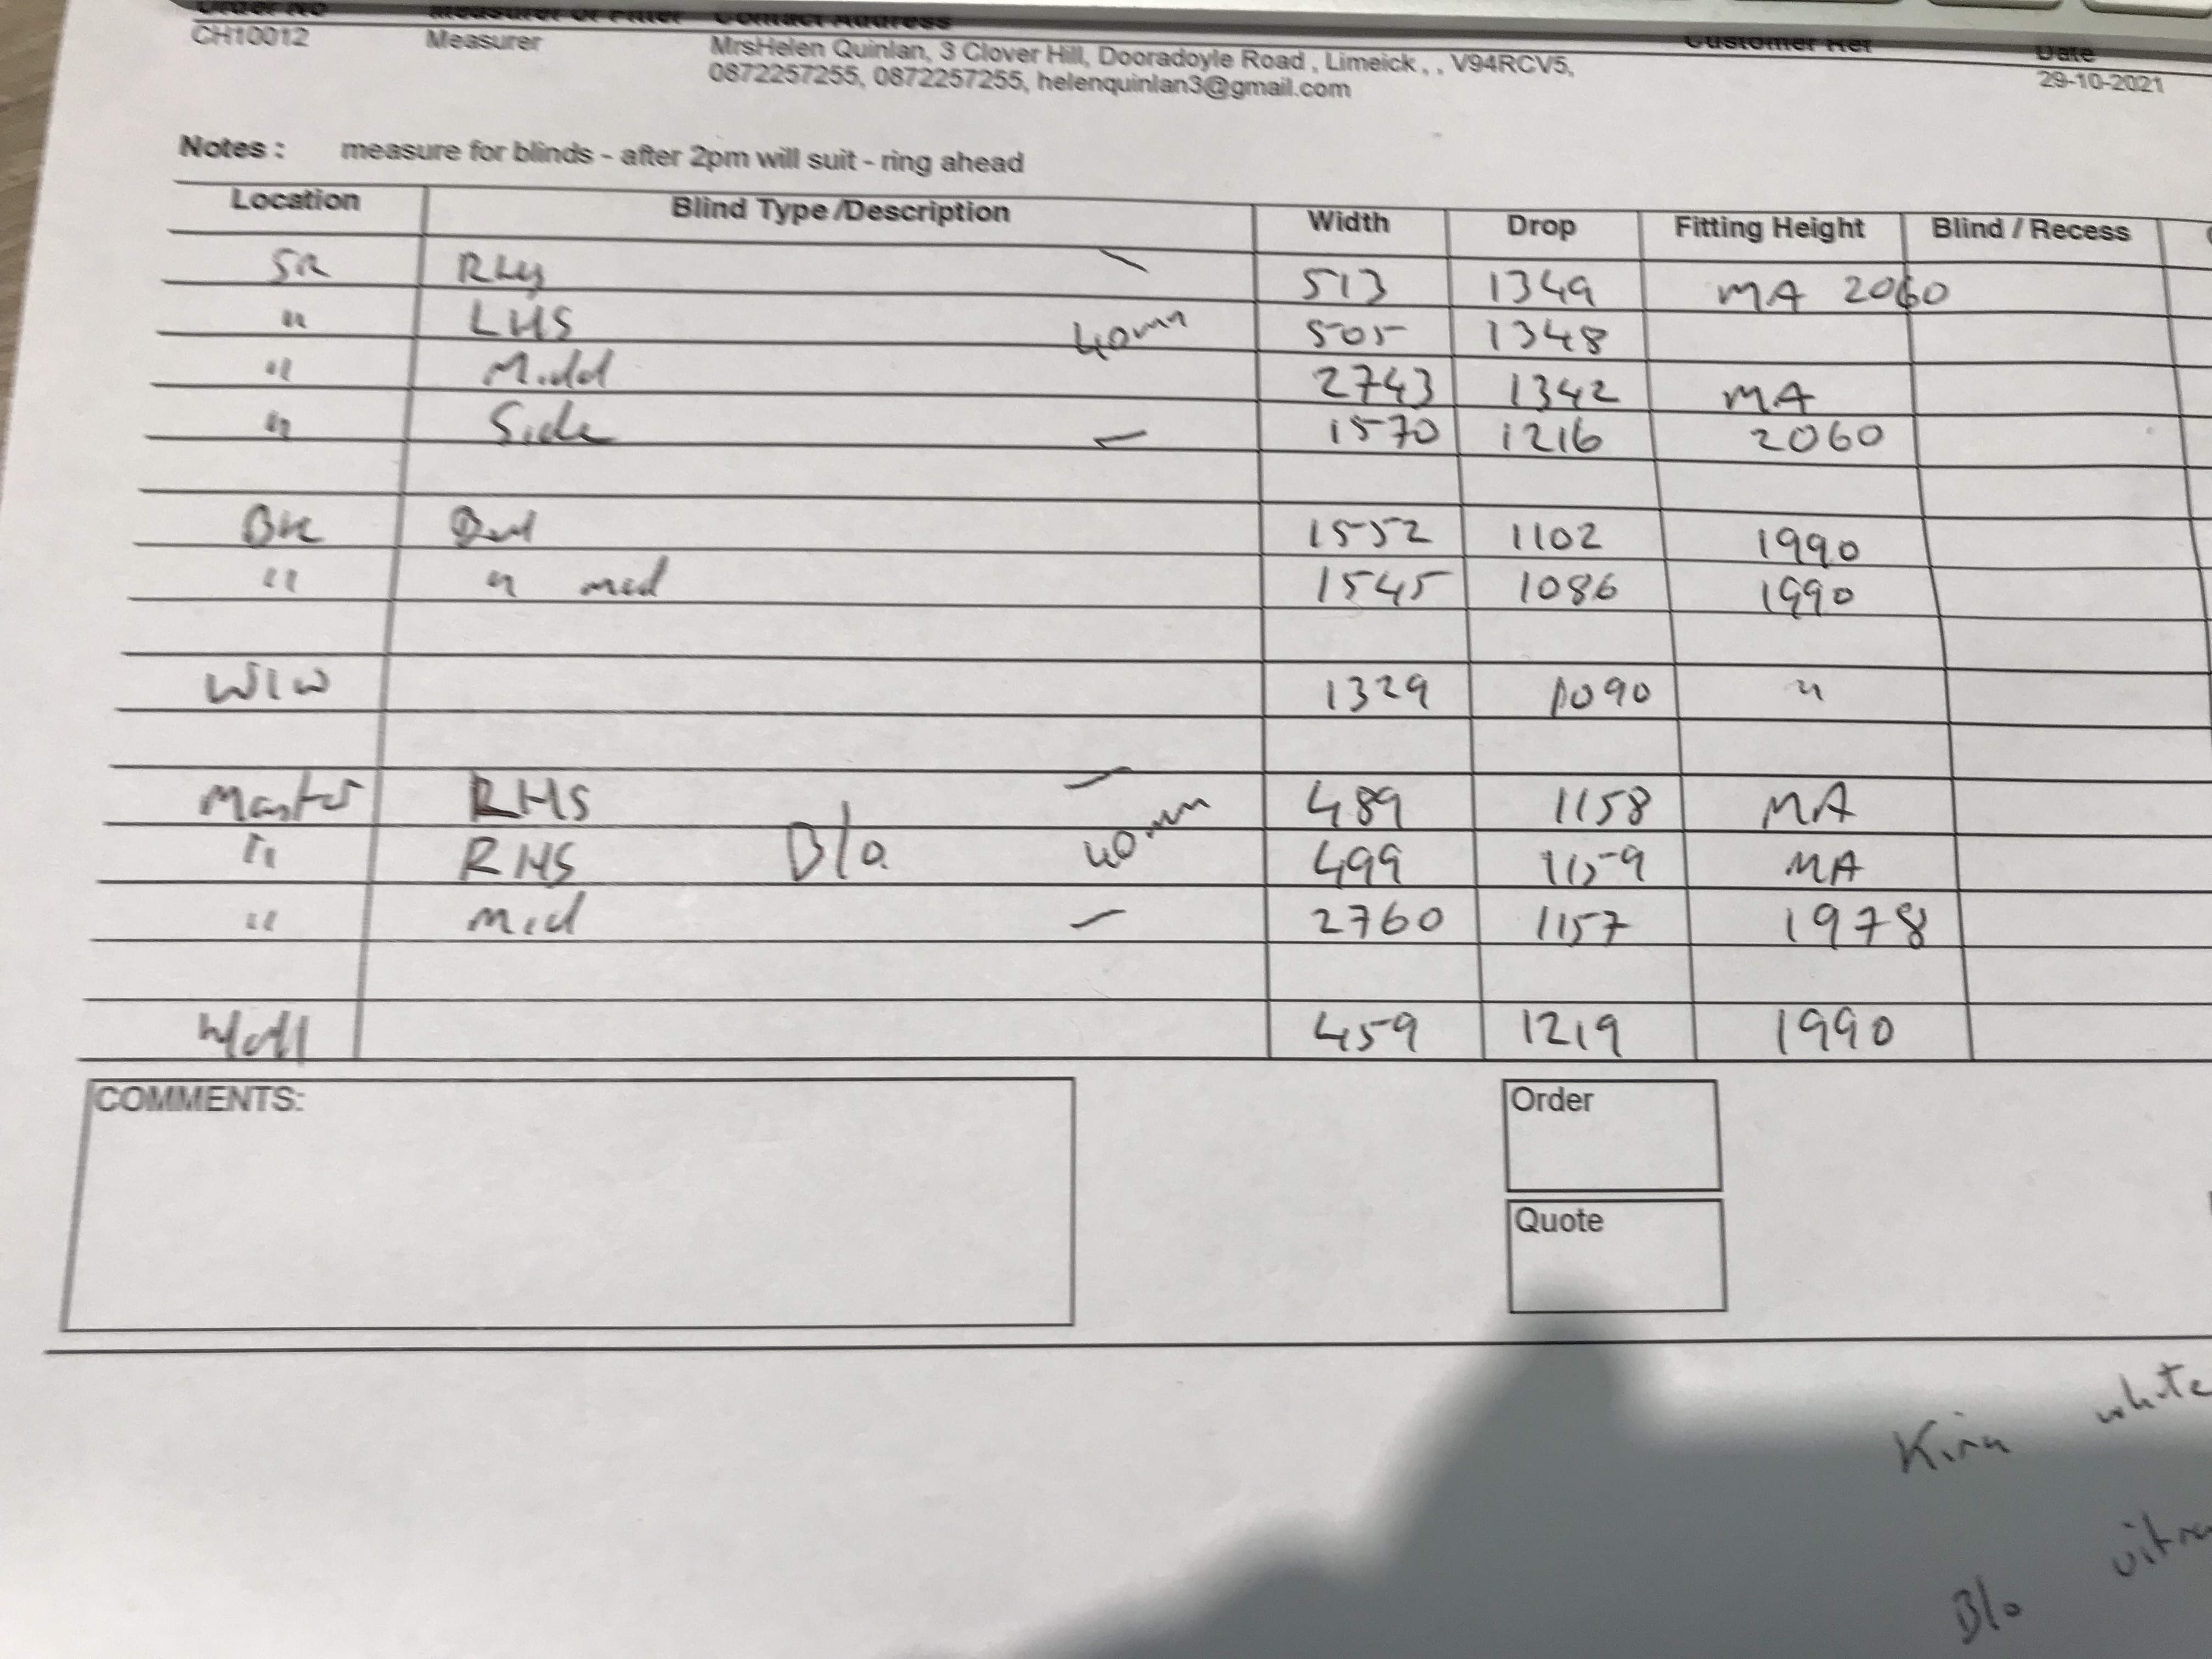 Order No Measurer or Fitter Contact Address Customer Ref Date
CH10012 Measurer MrsHelen Quinlan, 3 Clover Hill, Dooradoyle Road , Limeick , , V94RCV5, 29-10-2021
0872257255, 0872257255, helenquinlan3@gmail.com
Notes : measure for blinds - after 2pm will suit - ring ahead
Location Blind Type /Description Width Drop Fitting Height Blind / Recess
SR RHS 513 1349 MA 2060
" LHS 40mm 505 1348
" Midd 2743 1342 MA
" Side 1570 1216 2060
1552 1102 1990
" " mid 1545 1086 1990
WIW 1329 1090 "
Master RHS 489 1158 MA
" RHS B/o 40mm 499 1159 MA
" mid 2760 1157 1978
459 1219 1990
COMMENTS:
Order
Quote
white
B/o